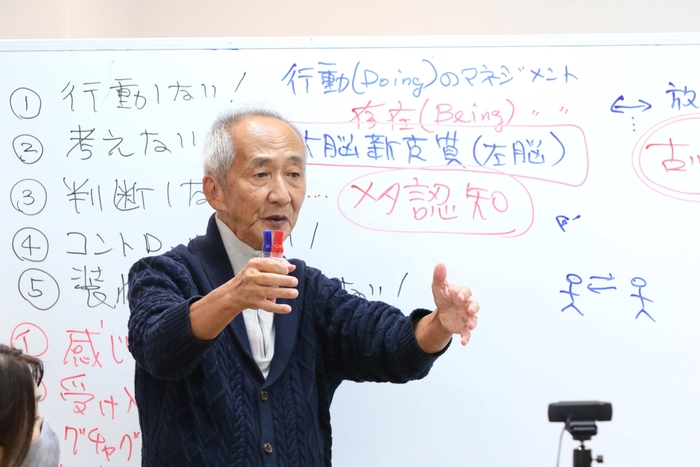 ① 行動しない!
② 考えない
③ 判断しな
④ コントロ !
⑤ 装 い!
① 感じ
受け入
グチャグ
行動(Doing)のマネジメント
存在(Being) 〃 〃
大脳新皮質(左脳)
メタ認知
↔ 放
古